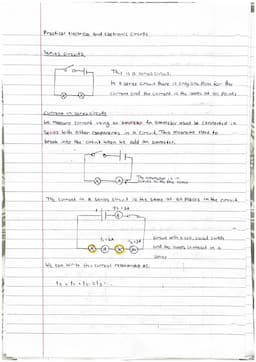 Practical Electrical and Electronic Circuits
Series Circuits
This is a series circuit.
In a series circuit there is only one Path for the
current and the current is the same at all points
Current in series circuits
We measure current using an ammeter. An ammeter must be connected in
Series with other components in a circuit. This means we need to
break into the circuit when we add an ammeter.
The ammeter is in
The current in a series circuit is the same at all places in the circuit
circuit with a cell, closed switch
and two lamps connected in
series
We can write this current relationship as: